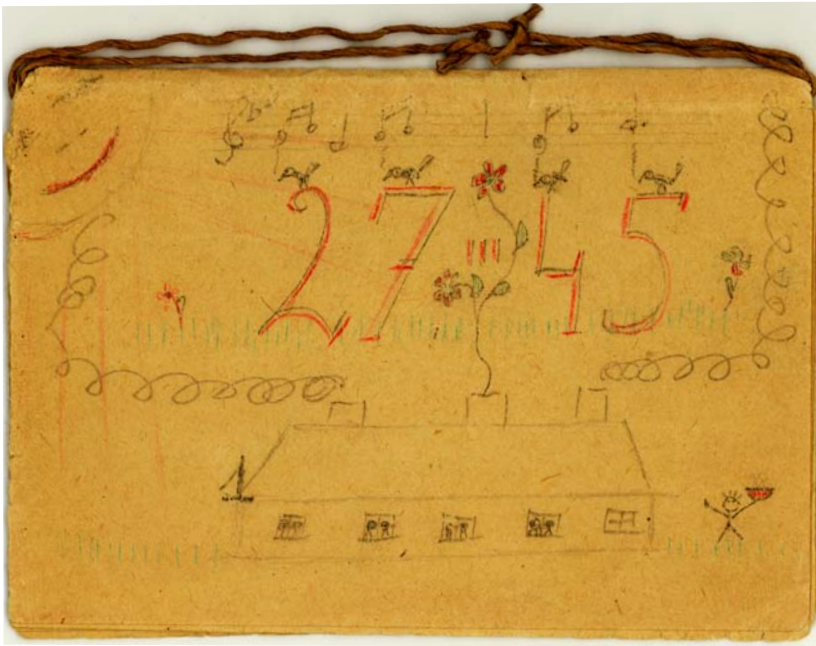 27 III 45